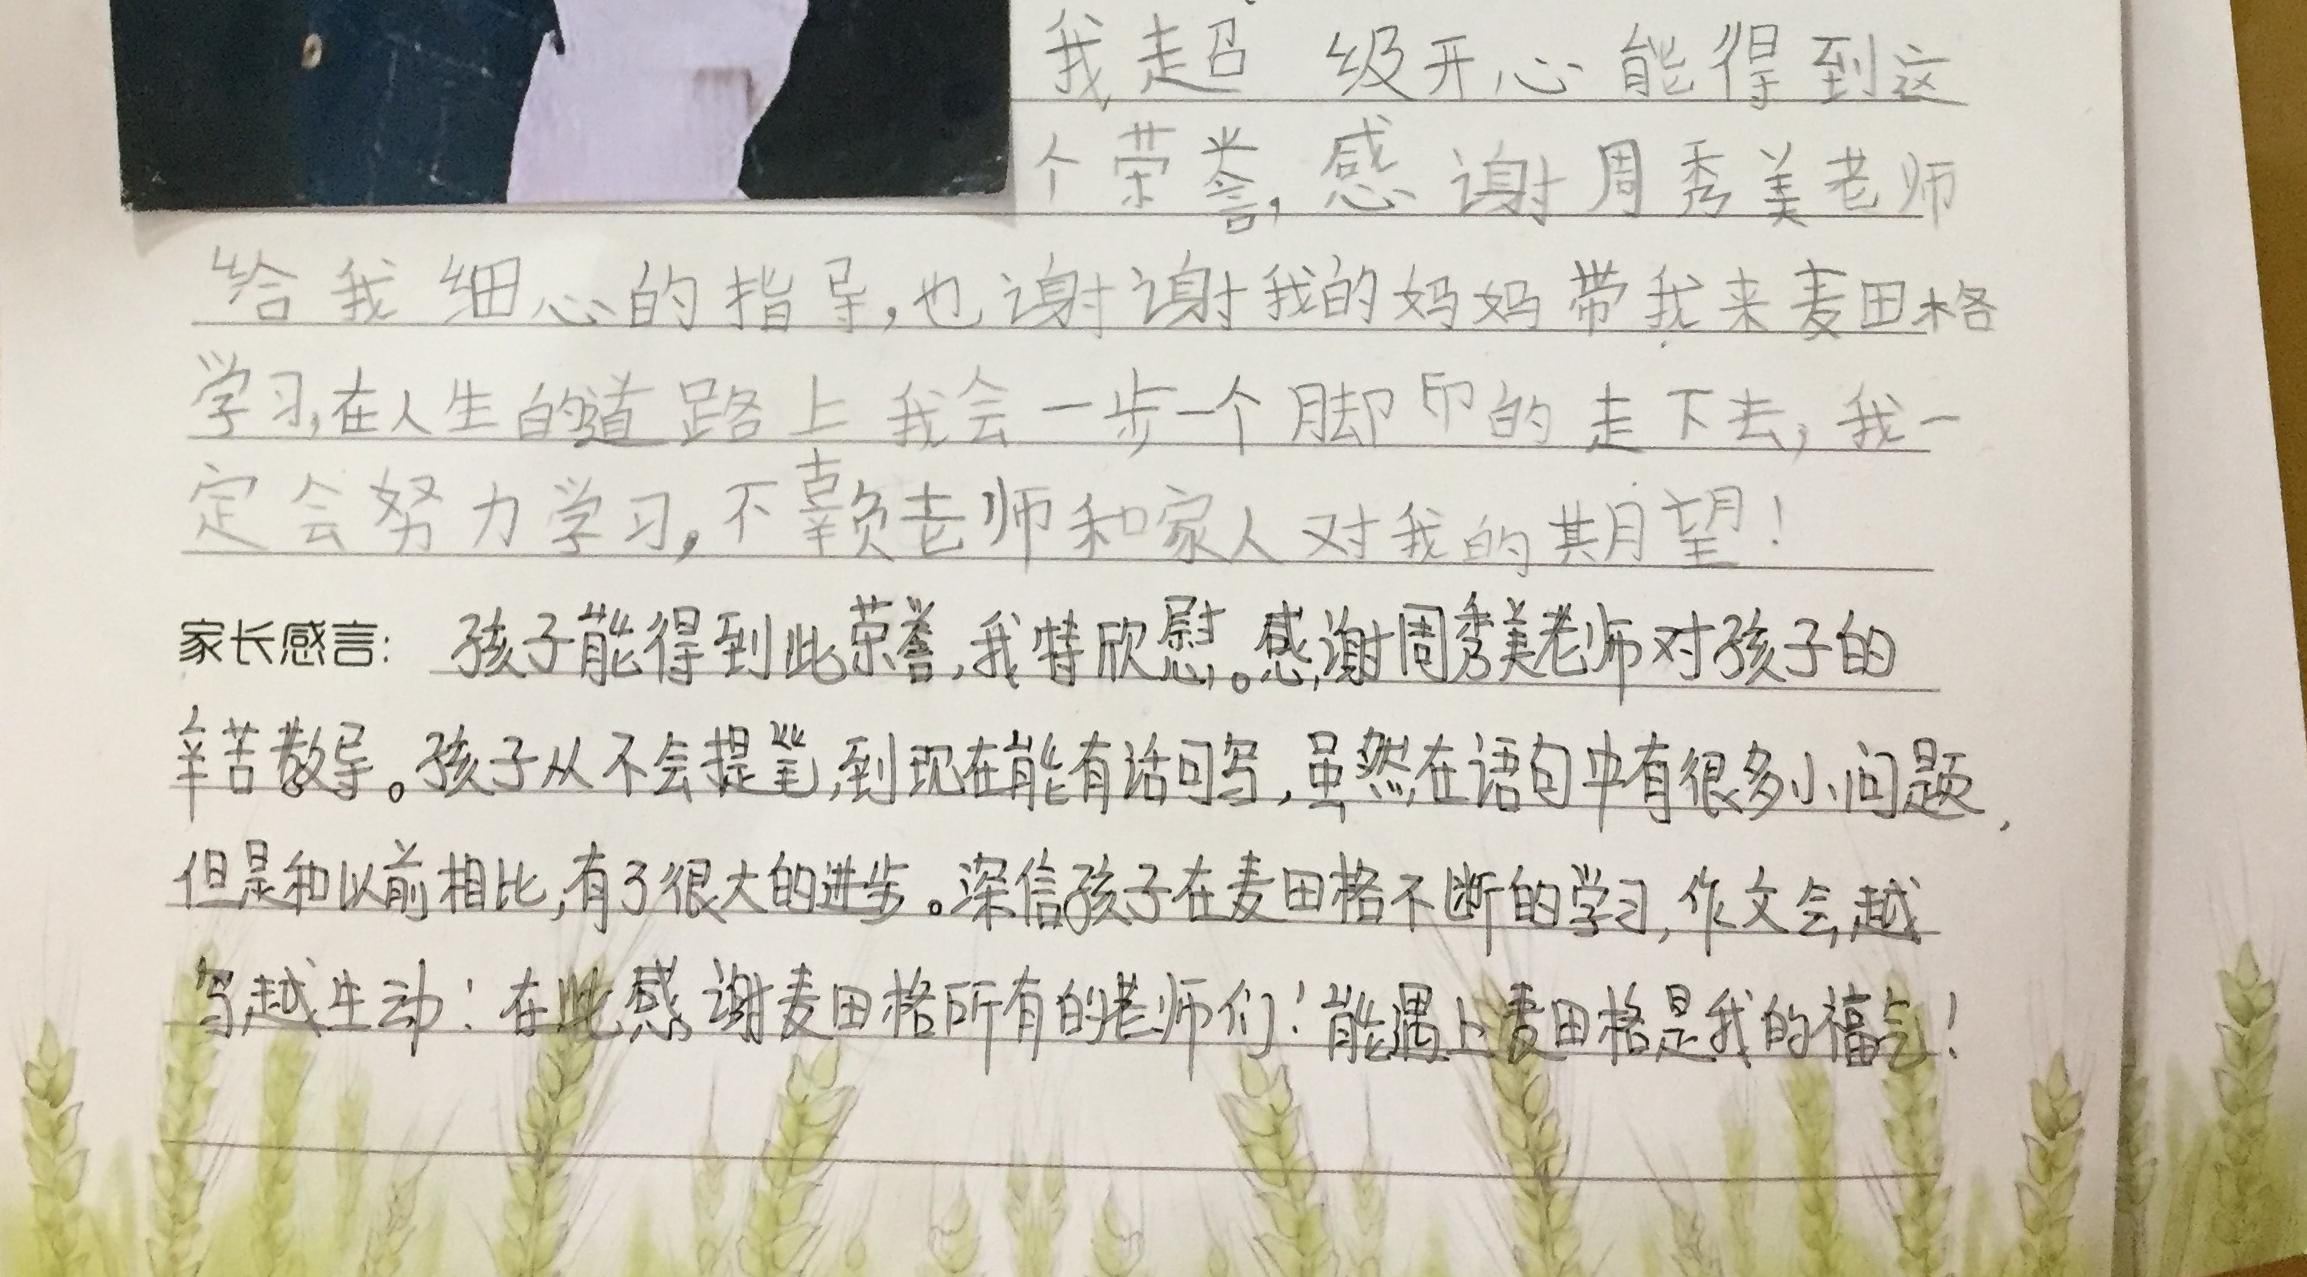 我超级开心能得到这
个荣誉,感谢周秀美老师
给我细心的指导,也谢谢我的妈妈带我来麦田格
学习,在人生的道路上我会一步一个脚印的走下去,我一
定会努力学习,不辜负老师和家人对我的期望!
家长感言: 孩子能得到此荣誉,我特欣慰。感谢周秀美老师对孩子的
辛苦教导。孩子从不会提笔,到现在能有话可写,虽然在语句中有很多小问题,
但是和以前相比,有了很大的进步。深信孩子在麦田格不断的学习,作文会越
写越生动!在此感谢麦田格所有的老师们!能遇上麦田格是我的福气!